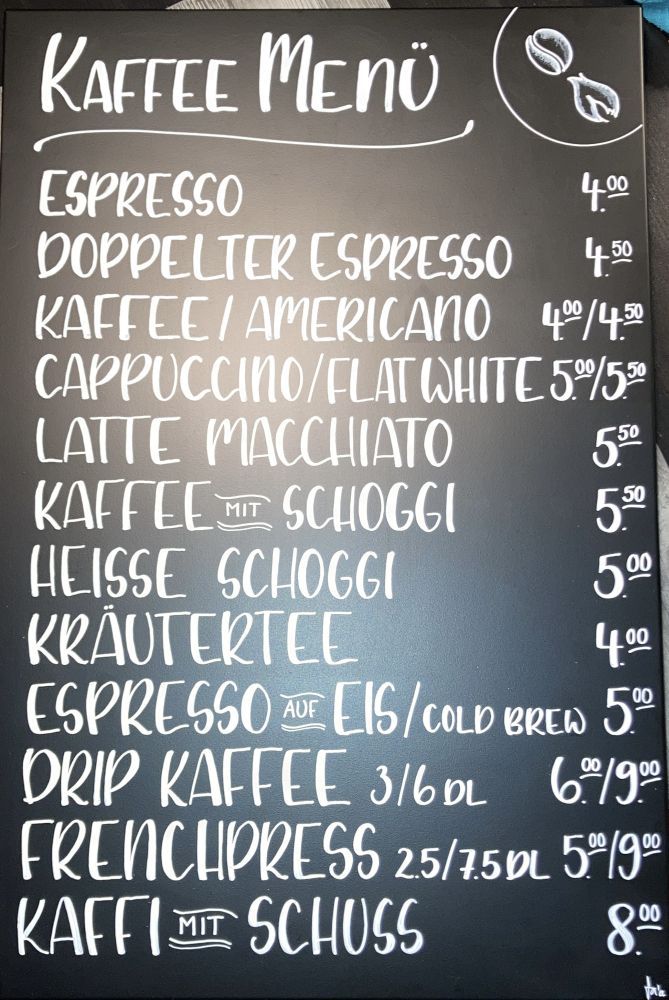 KAFFEE MENÜ
ESPRESSO 4.00
DOPPELTER ESPRESSO 4.50
KAFFEE/AMERICANO 4.00/4.50
CAPPUCCINO/FLAT WHITE 5.00/5.50
LATTE MACCHIATO 5.50
KAFFEE MIT SCHOGGI 5.50
HEISSE SCHOGGI 5.00
KRÄUTERTEE 4.00
ESPRESSO AUF EIS/COLD BREW 5.00
DRIP KAFFEE 3/6 DL 6.00/9.00
FRENCHPRESS 2.5/7.5 DL 5.00/9.00
KAFFI MIT SCHUSS 8.00